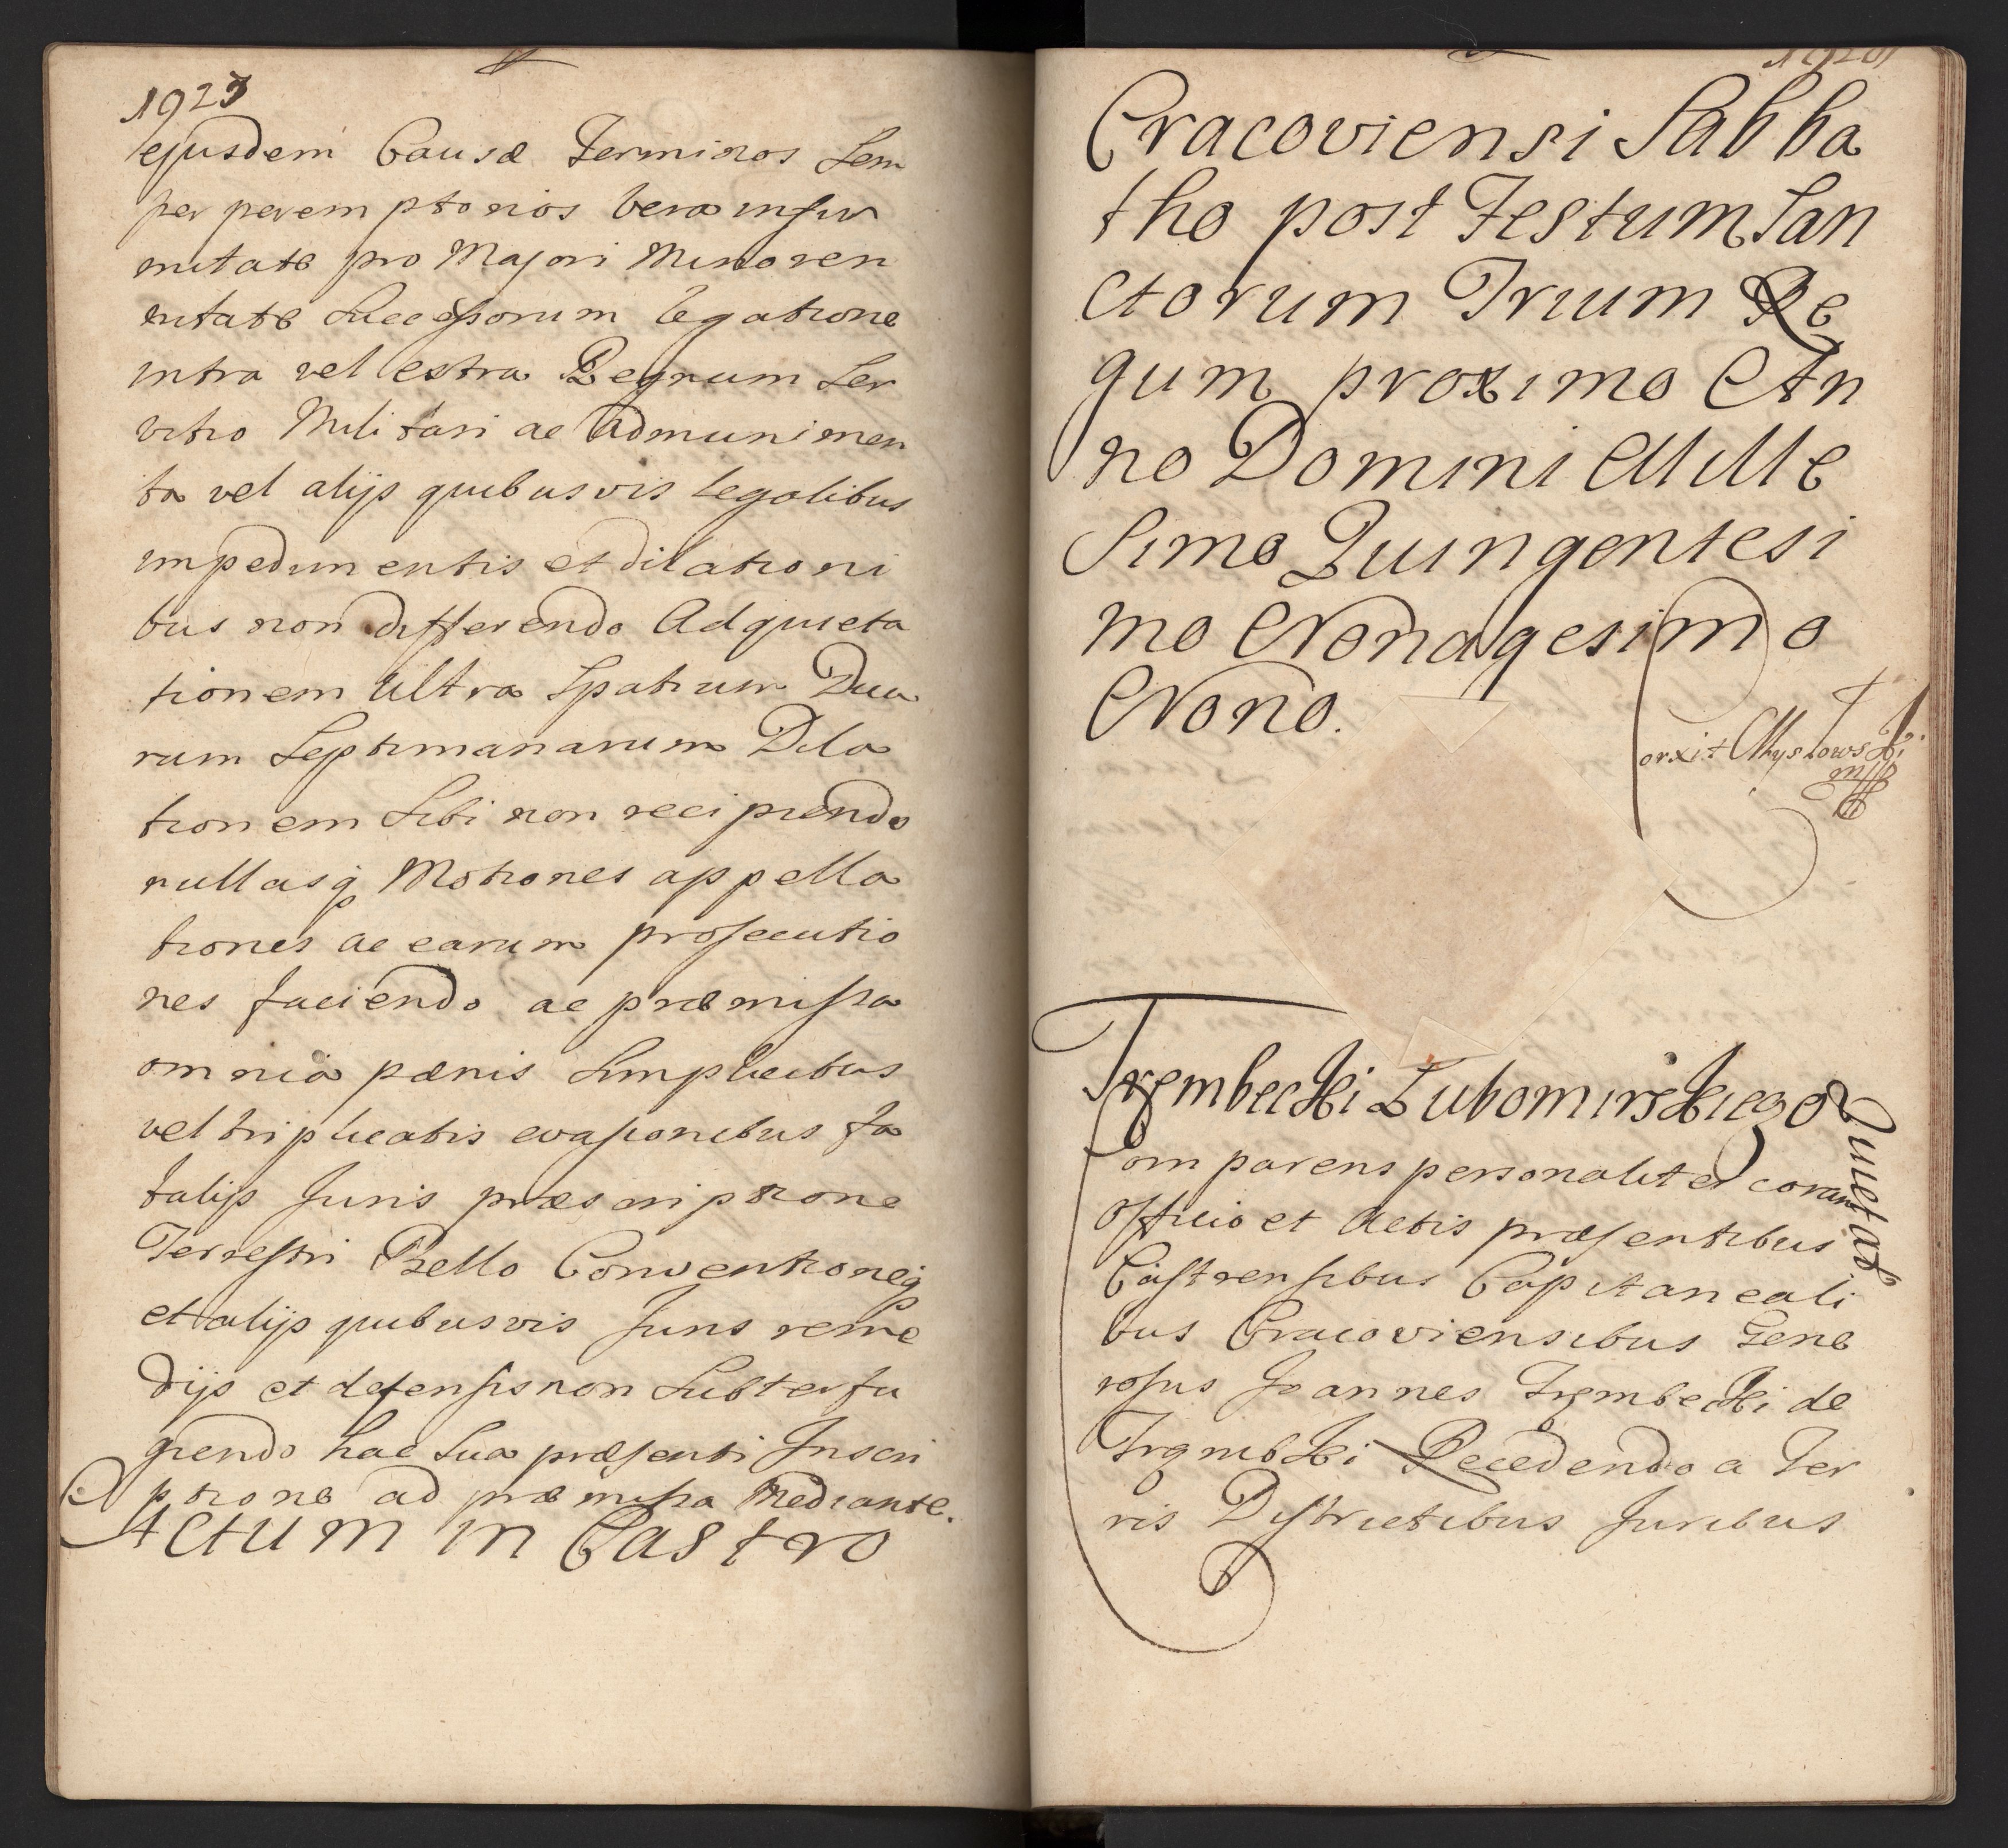 1927
ejusdem Causæ Terminos Sem
per peremptorios vera infir
mitate pro Majori Minoren
nitate Successorum legatione
intra vel extra Regnum Ser
vitio Militari ac Admunimen
ta vel alijs quibusvis legalibus
impedimentis et dilationi
bus non differendo Adquieta
tionem Ultra Spatium Dua
rum Septimanarum Dila
tionem Sibi non recipiendo
nullasq Motiones appella
tiones ac earum prosecutio
nes faciendo ac præmissa
omnia pænis Simplicibus
vel triplicatis evasionibus fa
talijs Juris præscriptione
Terrestri Bello Conventioneq
et alijs quibusvis Juris reme
dijs et defensis non Subterfu
giendo hac Sua præsenti Inscri
ptione ad præmissa Mediante.
Actum in Castro
Cracoviensi Sabba
tho post Festum San
ctorum Trium Re
gum proximo An
no Domini Mille
simo Quingentesi
mo Nonagesimo
Nono.
Corxit Mysłowski
mpp
Trzembecki Lubomirskiego
Quietat
Comparens personaliter coram
Officio et Actis præsentibus
Castrensibus Capitaneali
bus Cracoviensibus Gene
rosus Joannes Trzembecki de
Recedendo a Ter
ris Districtibus Juribus